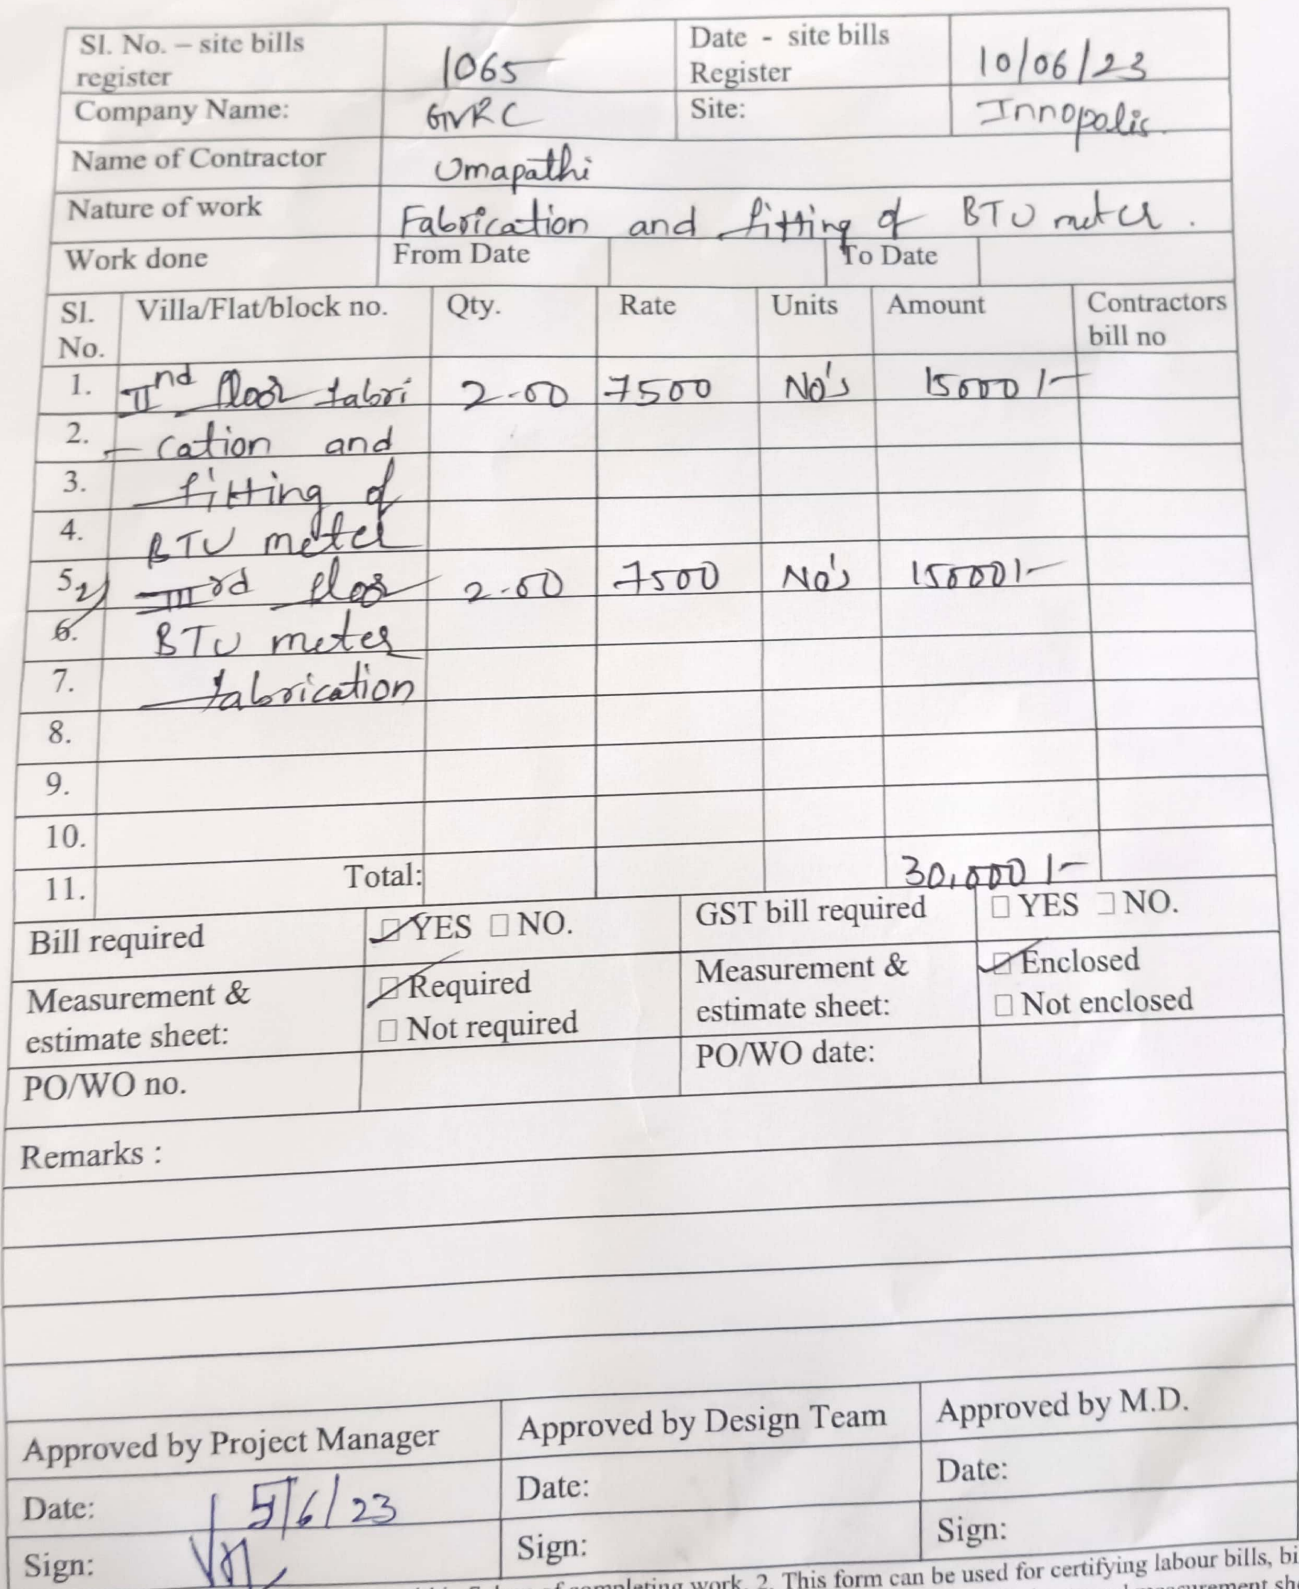 Sl. No. – site bills register 1065 Date - site bills Register 10/06/23
Company Name: GVRC Site: Innopolis.
Name of Contractor Umapathi
Nature of work Fabrication and fitting of BTU meter.
Work done From Date To Date
Sl. No. Villa/Flat/block no. Qty. Rate Units Amount Contractors bill no
1. IInd floor fabri 2-00 7500 No's 15000/-
2. - cation and
3. fitting of
4. BTU meter
5. 2) IIIrd floor 2-00 7500 No's 15000/-
6. BTU meter
7. fabrication
8.
9.
10.
11. Total: 30,000/-
Bill required YES NO. GST bill required YES NO.
Measurement & estimate sheet: Required Not required Measurement & estimate sheet: Enclosed Not enclosed
PO/WO no. PO/WO date:
Remarks :
Approved by Project Manager Approved by Design Team Approved by M.D.
Date: 5/6/23 Date: Date:
Sign: Sign: Sign:
completing work. 2. This form can be used for certifying labour bills, bi